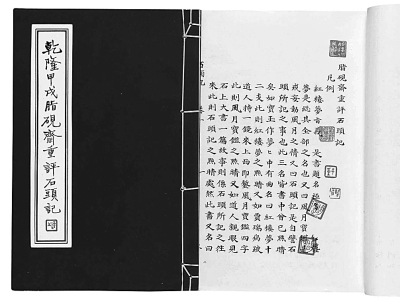 乾隆甲戌脂硯齋重評石頭記
脂硯齋重評石頭記
凡例
紅樓夢旨義 是書題名
夢是總其全部之名也又曰風月寶鑑是
戒妄動風月之情又曰石頭記是自譬石
頭所記之事也此三名皆書中曾已點睛
矣如寶玉作夢夢中有曲名曰紅樓夢十
二支此則紅樓夢之點睛又如賈瑞病跛
道人持一鏡來上面即鏨風月寶鑑四字
此則風月寶鑑之點睛又如道人親眼見
石上大書一篇故事則係石頭所記之往
來此則石頭記之點睛處然此書又名曰